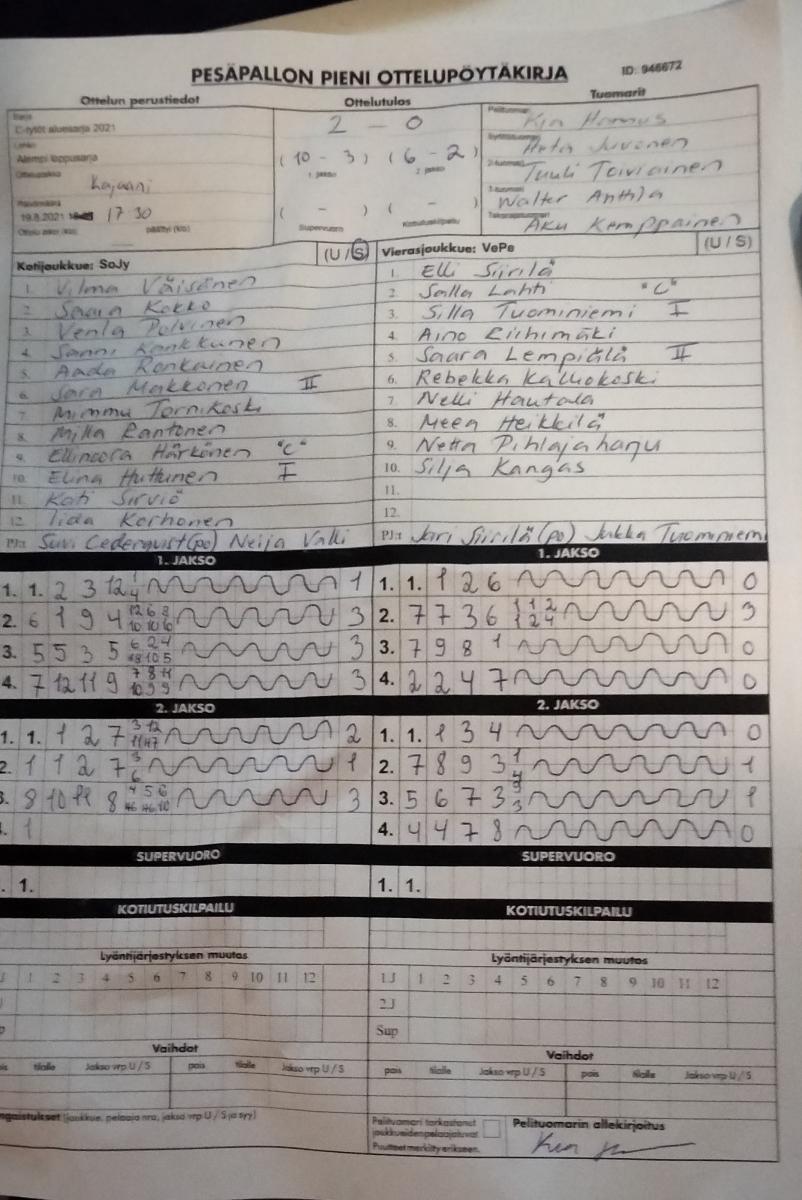 PESÄPALLON PIENI OTTELUPÖYTÄKIRJA
ID: 946672
Ottelun perustiedot
Ottelutulos
Tuomarit
Sarja
C-tytöt aluesarja 2021
Lohko
Alempi loppusarja
Ottelupaikka
Kajaani
Päivämäärä
19.8.2021 17 30
Ottelu alkoi (klo) päättyi (klo)
2 - 0
(10 - 3) (6 - 2)
1. jakso 2. jakso
( - ) ( - )
Supervuoro Kotiutuskilpailu
Pelituomari
Juvonen
2-tuomari
Tuuli Toiviainen
Walter Anttila
Aku Kemppainen
Kotijoukkue: SoJy (U / S)
1. Vilma Väisänen
2. Saara Kokko
3. Venla Polvinen
4. Sanni Kankkunen
5. Aada Ronkainen
6. Sara Makkonen II
7. Mimmu Tornikoski
8. Milla Rantonen
9. Ellinoora Härkönen "C"
10. Elina Huttunen I
11. Kati Sirviö
12. Iida Korhonen
PJ:t Suvi Cederqvist (po) Neija Valli
Vierasjoukkue: VePe (U / S)
1. Elli Siirilä
2. Salla Lahti "C"
3. Silla Tuominiemi I
4. Aino Riihimäki
5. Saara Lempiälä II
6. Rebekka Kalliokoski
7. Nelli Hautala
8. Meea Heikkilä
9. Netta Pihlajaharju
10. Silja Kangas
11.
12.
PJ:t Jari Siirilä (po) Jukka Tuominiem
1. JAKSO
1. 1. 2 3 12 1 4 1
2. 6 1 9 4 3
3. 5 5 3 5 3
4. 7 12 11 9 3
1. JAKSO
1. 1. 1 2 6 0
2. 7 7 3 6 1 1 2 1 2 4 3
3. 7 9 8 1 0
4. 2 2 4 7 0
2. JAKSO
1. 1. 1 2 7 2
2. 1 1 2 7 3 6 1
3. 8 10 11 8 3
1
2. JAKSO
1. 1. 1 3 4 0
2. 7 8 9 3 1 4 1
3. 5 6 7 3 9 3 1
4. 4 4 7 8 0
SUPERVUORO
1.
SUPERVUORO
1. 1.
KOTIUTUSKILPAILU
KOTIUTUSKILPAILU
Lyöntijärjestyksen muutos
1 2 3 4 5 6 7 8 9 10 11 12
Lyöntijärjestyksen muutos
1J 1 2 3 4 5 6 7 8 9 10 11 12
2J
Sup
Vaihdot
tilalle Jakso vrp U / S pois tilalle Jakso vrp U / S
Vaihdot
pois tilalle Jakso vrp U / S pois tilalle Jakso vrp U / S
(joukkue, pelaaja nro, jakso vrp U / S ja syy)
Pelituomari tarkastanut
joukkueiden pelaajaluvat
Puutteet merkitty erikseen.
Pelituomarin allekirjoitus